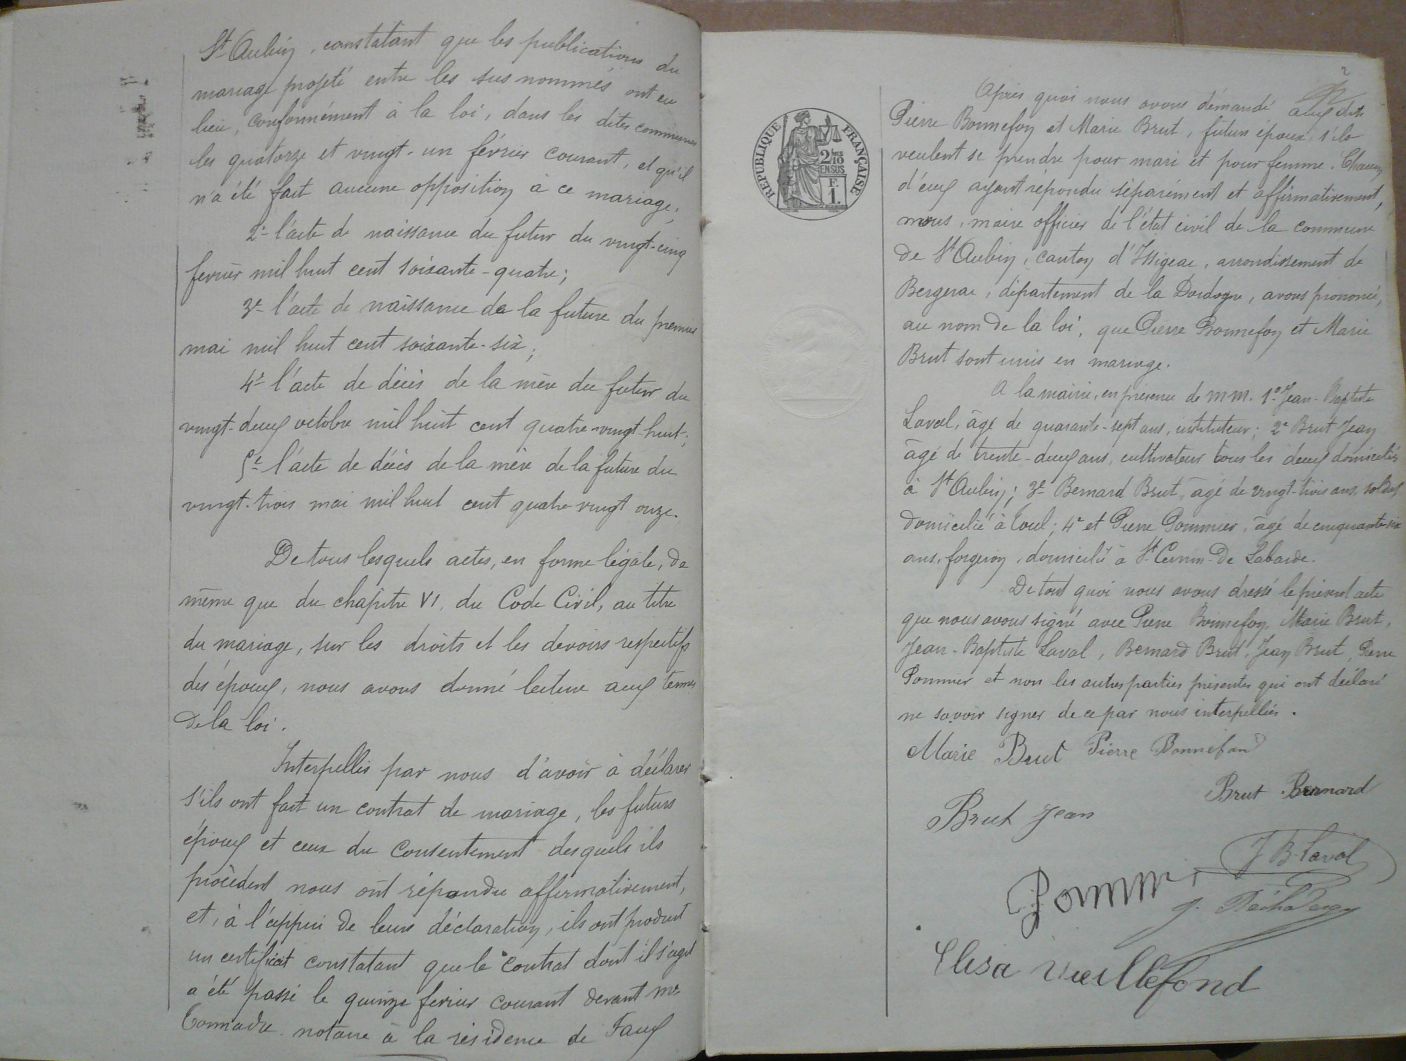 St Aubin, constatant que les publications du
mariage projeté entre les sus nommés ont eu
lieu, conformément à la loi, dans les dites communes
les quatorze et vingt-un février courant, et qu'il
n'a été fait aucune opposition à ce mariage;
2e l'acte de naissance du futur du vingt-cinq
fevrier mil huit cent soixante-quatre;
3e l'acte de naissance de la future du premier
mai mil huit cent soixante-six;
4e l'acte de décès de la mère du futur du
vingt-deux octobre mil huit cent quatre-vingt-huit;
5e l'acte de décès de la mère de la future du
vingt-trois mai mil huit cent quatre vingt onze.
De tous lesquels actes, en forme légale, de
même que du chapitre VI, du Code Civil, au titre
du mariage, sur les droits et les devoirs respectifs
des époux, nous avons donné lecture aux termes
de la loi.
Interpellés par nous d'avoir à déclarer
s'ils ont fait un contrat de mariage, les futurs
époux et ceux du consentement desquels ils
procèdent nous ont répondu affirmativement,
et, à l'appui de leur déclaration, ils ont produit
un certificat constatant que le contrat dont il s'agit
a été passé le quinze fevrier courant devant Me
notaire à la résidence de Faux
2
Après quoi nous avons démandé aux dits
Pierre Bonnefon et Marie Brut, futurs époux s'ils
veulent se prendre pour mari et pour femme. Chacun
d'eux ayant répondu séparément et affirmativement,
nous, maire officier de l'état civil de la commune
de St Aubin, canton d'Issigeac, arrondissement de
Bergerac, département de la Dordogne, avons prononcé,
au nom de la loi, que Pierre Bonnefon et Marie
Brut sont unis en mariage.
A la mairie, en présence de MM. 1e Jean-Baptiste
Laval, âgé de quarante-sept ans, instituteur; 2e Brut Jean
âgé de trente-deux ans, cultivateur tous les deux domiciliés
à St Aubin; 3e Bernard Brut, âgé de vingt-trois ans, soldat
domicilié à Toul; 4e et Pierre Pommier, âgé de cinquante-six
ans, forgeron, domicilié à St Cernin-de Labarde.
De tout quoi nous avons dressé le présent acte
que nous avons signé avec Pierre Bonnefon, Marie Brut,
Jean-Baptiste Laval, Bernard Brut, Jean Brut, Pierre
Pommier et non les autres parties présentes qui ont déclaré
ne savoir signer de ce par nous interpellés.
RÉPUBLIQUE FRANÇAISE
2/10
EN SUS
F.
1.
Marie Brut Pierre Bonnefond
Brut Bernard
Brut Jean
J B Laval
Pommier
Elisa Vieillefond